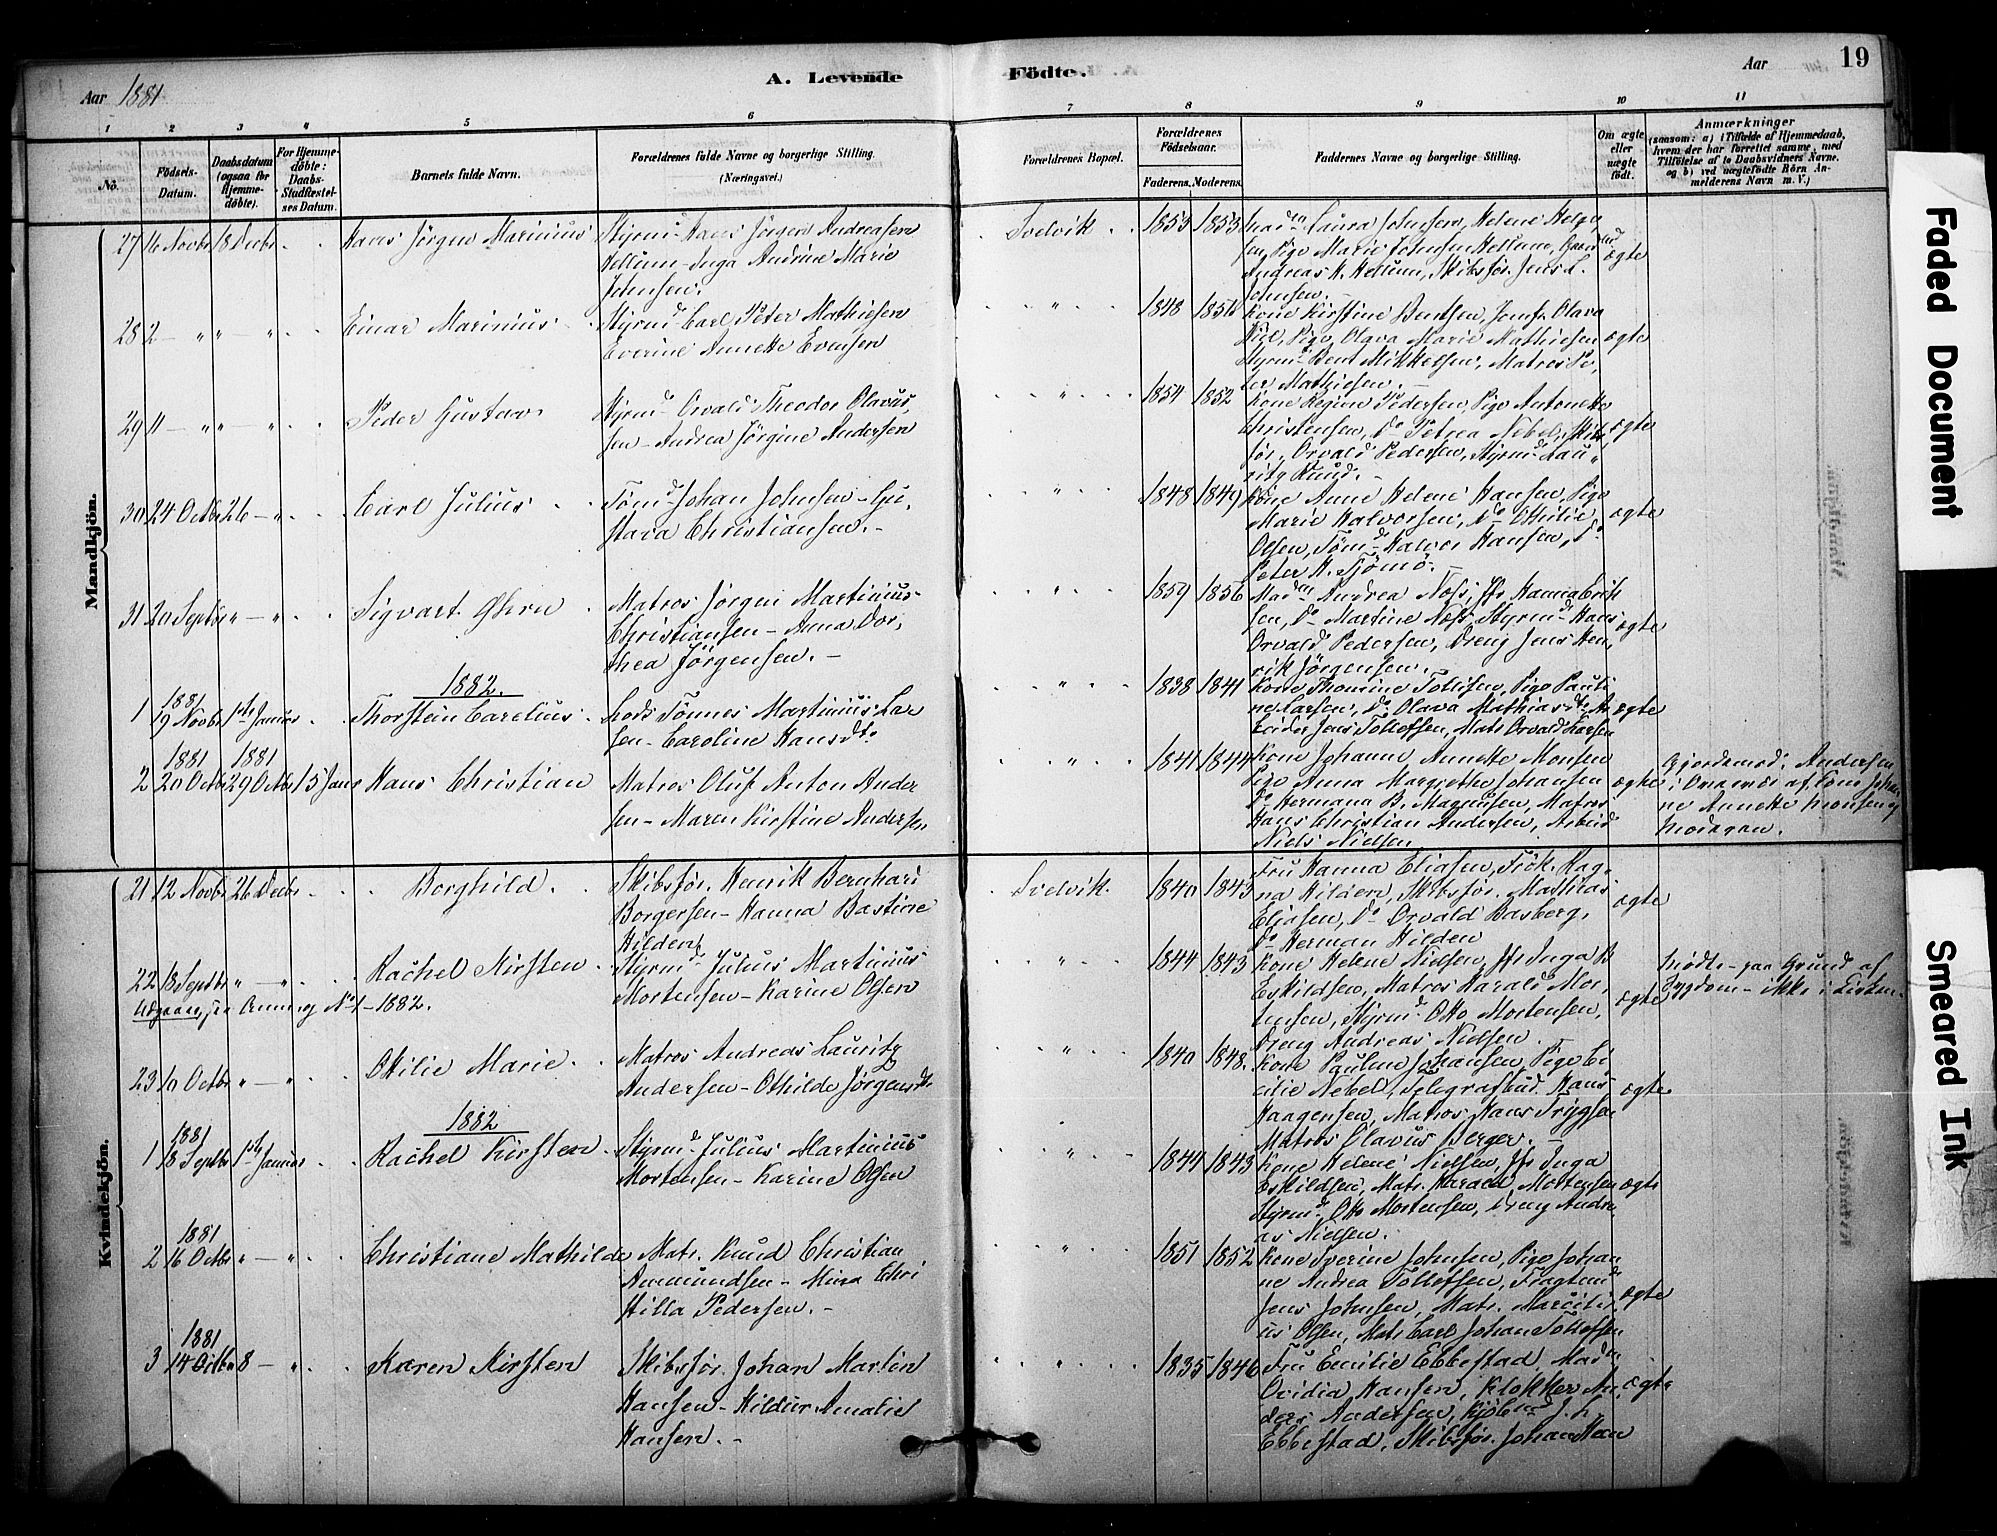 19
A. Levende Födte.
Aar 1881
Aar
1 2 3 4 5 6 7 8 9 10 11
No.
Födsels-Datum.
Daabsdatum (ogsaa for Hjemme-döbte).
For Hjemme-döbte: Daabs-Stadfæstel-ses Datum.
Barnets fulde Navn.
Forældrenes fulde Navne og borgerlige Stilling.
(Næringsvei.)
Forældrenes Bopæl.
Forældrenes Födselsaar.
Faderens. Moderens.
Faddernes Navne og borgerlige Stilling.
Om ægte eller uægte födt.
Anmærkninger
(saasom: a) i Tilfælde af Hjemmedaab, hvem der har forrettet samme, med Tilföielse af to Daabsvidners Navne. og b) ved uægtefödte Börn Anmelderens Navn m. V.)
Mandkjön.
27 16 Novbr 18 Decbr Hans Jörgen Marinius
Styrmd Hans Jörgen Andreasen
Hellum - Inga Andrine Marie
Johnsen.
Svelvik 1853 1853
Madm Laura Johnsen, Helene Helge
sen, Pige Marie Johnsen Hellum, Gaard
Andreas H. Hellum, Skibsför. Jens L.
Johnsen. ægte
28 2 - " " - " Einar Marinius
Styrmd Carl Peter Mathiesen
Everine Annette Evensen
" 1848 1851
Kone Kirstine Bentsen, Jomf. Olava
Piil, Pige Olava Marie Mathiesen
Styrmd Bent Mikkelsen, Matros Pe
ter Mathiesen. ægte
29 11 - " " - " Peder Gustav
Styrmd Orvald Theodor Olavus,
sen - Andrea Jörgine Andersen
" 1854 1852
Kone Regine Pedersen, Pige Antonette
Christensen, Do Petrea Nebel, Skibs
för. Orvald Pedersen, Styrmd Lau
ritz Knud. ægte
30 24 Octbr 26 - " Carl Julius
Tömd Johan Johnsen - Gu,
stava Christiansen. -
" 1848 1849
Kone Anne Helene Hansen, Pige
Marie Halvorsen, Do Othilie
Olsen, Tömd Halvor Hansen, Do
Peter H. Tjömö. ægte
31 20 Septbr " - " Sigvart Ghen
Matros Jörgen Martinius
Christiansen - Anna Dor,
thea Jörgensen. -
" 1859 1856
Madm Andrea Næss, Jfr Hanna Erik
sen, Do Martine Næss, Styrmd Hans
Orvald Pedersen, Dreng Jens Hen,
rik Jörgensen. ægte
1882.
1 1881 19 Novbr 1ste Januar Thorstein Carelius
Lods Tönnes Martinius Lar
sen - Caroline Hansdtr
" 1838 1841
Kone Thomine Tollefsen, Pige Pauli
ne Larsen, Do Olava Mathiasdtr Ar
beider Jens Tollefsen, Mats Orvald Larsen ægte
2 1881 20 Octbr 1881 29 Octbr 15 Janr Hans Christian
Matros Oluf Anton Ander
sen - Maren Kirstine Andersen
" 1841 1844
Kone Johanne Annette Monsen
Pige Anna Margrethe Johansen
Do Hermana B. Magnusen, Matros
Hans Christian Andersen, Arbeid
Niels Nielsen ægte
Gjordemod. Andersen
i Overvær af Kone Johan
ne Annette Monsen og
Moderen.
Kvindekjön.
21 12 Novbr 26 Decbr Borghild.
Skibsför. Henrik Bernhard
Borgersen - Hanna Bastine
Hilden
Svelvik 1840 1843
Fru Hanna Eliasen, Frök. Rag
na Hilden, Skibsför. Mathias
Eliasen, Do Orvald Basberg,
Do Herman Hilden ægte
22 18 Septbr " - " Rachel Kirsten
Styrmd Julius Martinius
Mortensen - Karine Olsen
Udgaar, se Anm og No 1 - 1882.
" 1844 1843
Kone Helene Nielsen, Jfr Inga B
Eskildsen, Matros Harald Mor
tensen, Styrmd Otto Mortensen,
Dreng Andreas Nielsen ægte
Mödte - paa Grund af
Sygdom - ikke i Kirken.
23 10 Octbr " - " Otilie Marie
Matros Andreas Lauritz
Andersen - Othilde Jörgensdtr
" 1840 1848
Kone Pauline Johansen, Pige Ce
cilie Nebel, Telegrafbud Hans
Haagensen, Matros Hans Trygsen
Matros Olavus Berger. ægte
1882
1 1881 18 Septbr 1ste Januar Rachel Kirsten
Styrmd Julius Martinius
Mortensen - Karine Olsen
" 1844 1843
Kone Helene Nielsen, Jfr Inga
Eskildsen, Matr. Harald Mortensen
Styrmd Otto Mortensen, Dreng Andre
as Nielsen. ægte
2 1881 16 Octbr " - " Christiane Mathilde
Matr. Knud Christian
Anmundsen - Mina Chri
stilla Pedersen. -
" 1851 1852
Kone Severine Johnsen, Pige Johan
ne Andrea Tollefsen, Fragtemd
Jens Johnsen, Matr. Marceli
us Olsen, Matr Carl Johan Tollefsen ægte
3 1881 14 Octbr 8 - " Karen Kirsten
Skibsför. Johan Martin
Hansen - Hildur Amalie
Hansen. -
" 1835 1846
Fru Emilie Ebbestad, Madm
Ovidia Hansen, Klokker An
ders Andersen, Kjöbmd J. n.
Ebbestad, Skibsför. Johan Han ægte
Faded Document
Smeared Ink